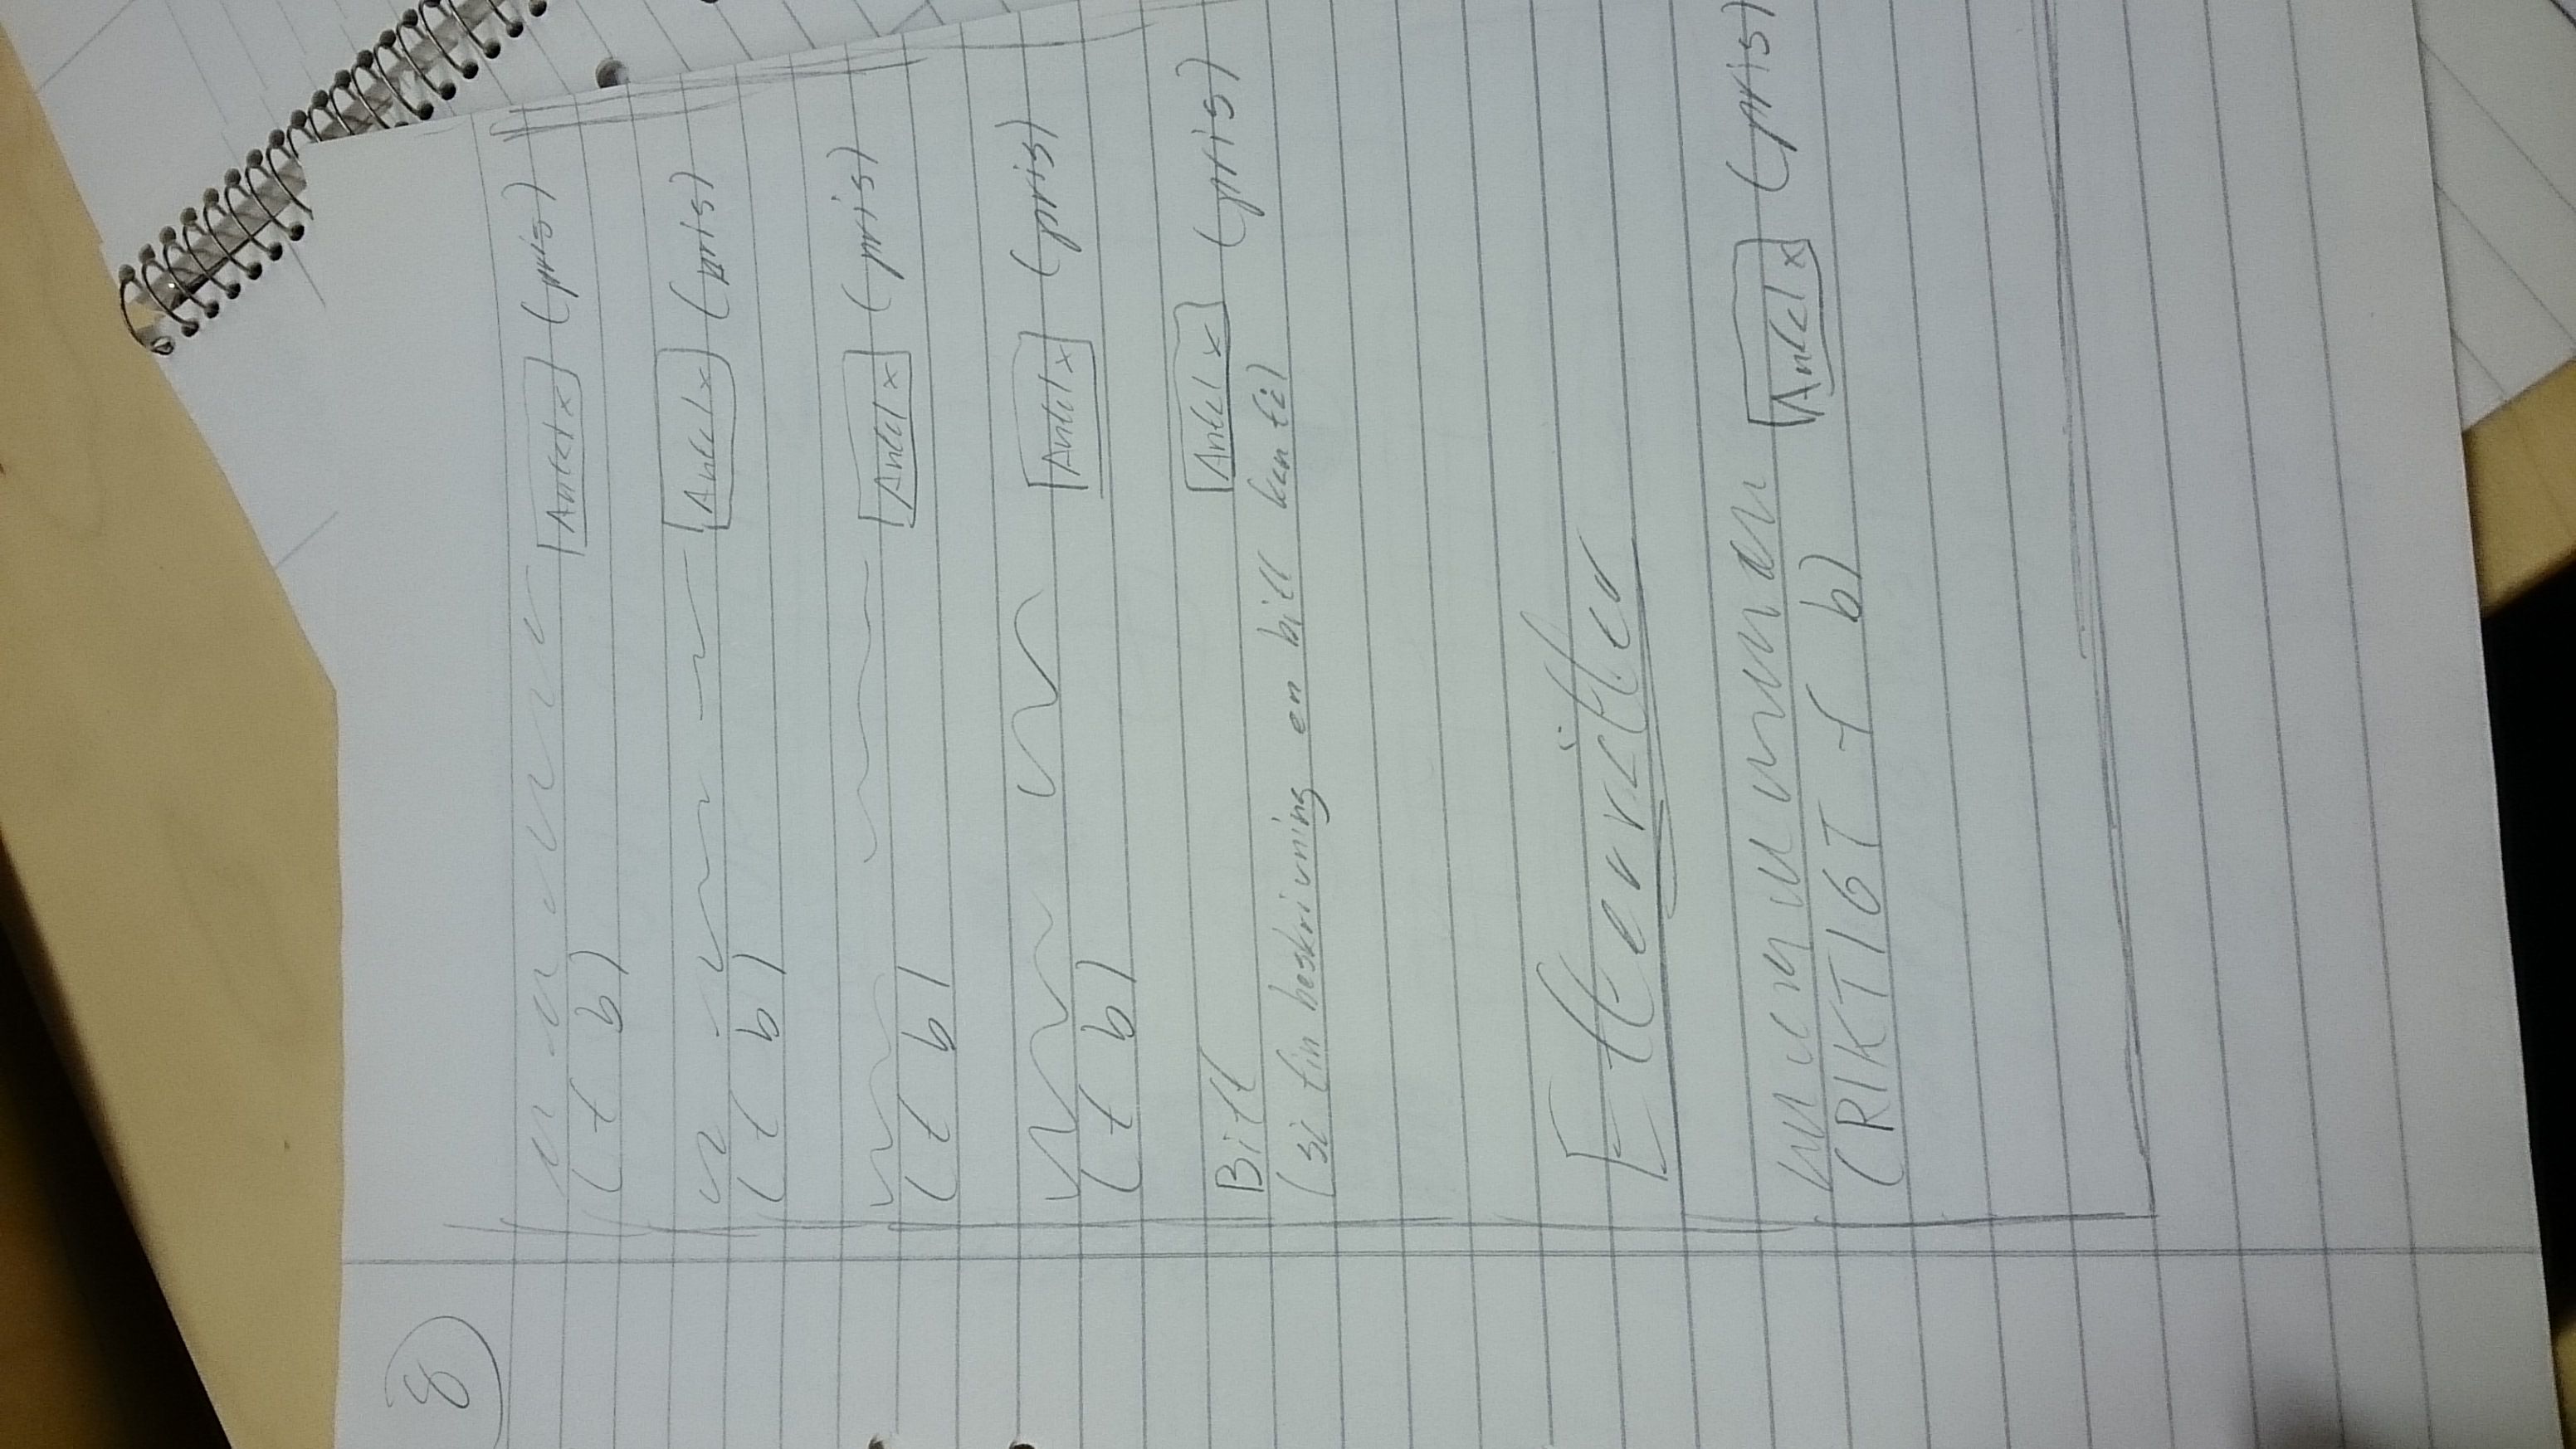 8
Antal x (pris)
(f b)
Antal x (pris)
(f b)
Antal x (pris)
(f b)
Antal x (pris)
(f b)
Biff Antal x (pris)
(så fin beskrivning en biff kan få)
Efterrätter
Antal x (pris)
(RIKTIGT f b)